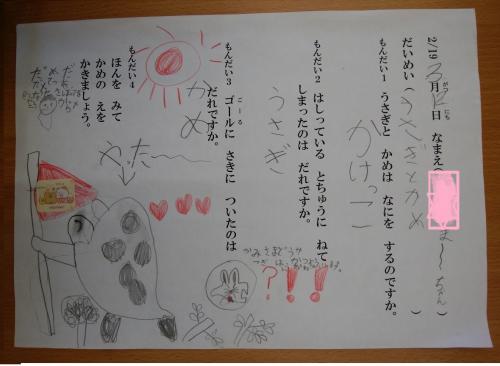 2/19 3月12日 なまえ( ま〜ちゃん )
だいめい(うさぎとかめ)
もんだい1 うさぎと かめは なにを するのですか。
かけっこ
もんだい2 はしっている とちゅうに ねて
しまったのは だれですか。
うさぎ
もんだい3 ゴールに さきに ついたのは
ごーる
だれですか。
かめ
もんだい4
ほんを みて
かめの えを
かきましょう。
やったー
かみさまどうか
?!!!